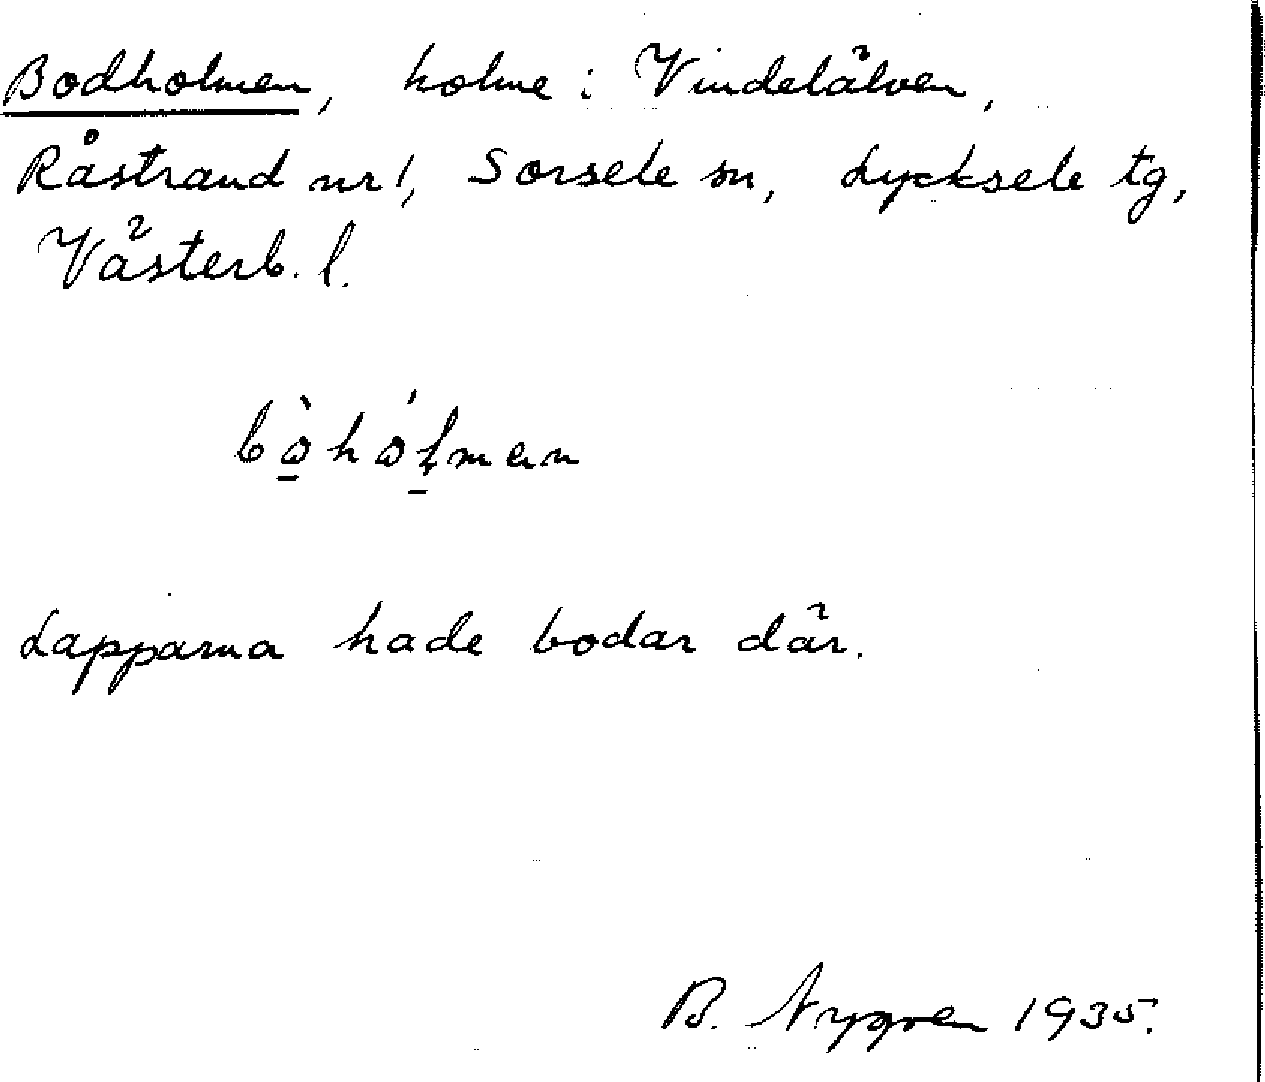 Bodholmen, holme i Vindelälven,
Råstrand nr 1, Sorsele sn, Lycksele tg,
Västerb. l.
bò̱hó̱lmen
Lapparna hade bodar där.
B. Nygren 1935.